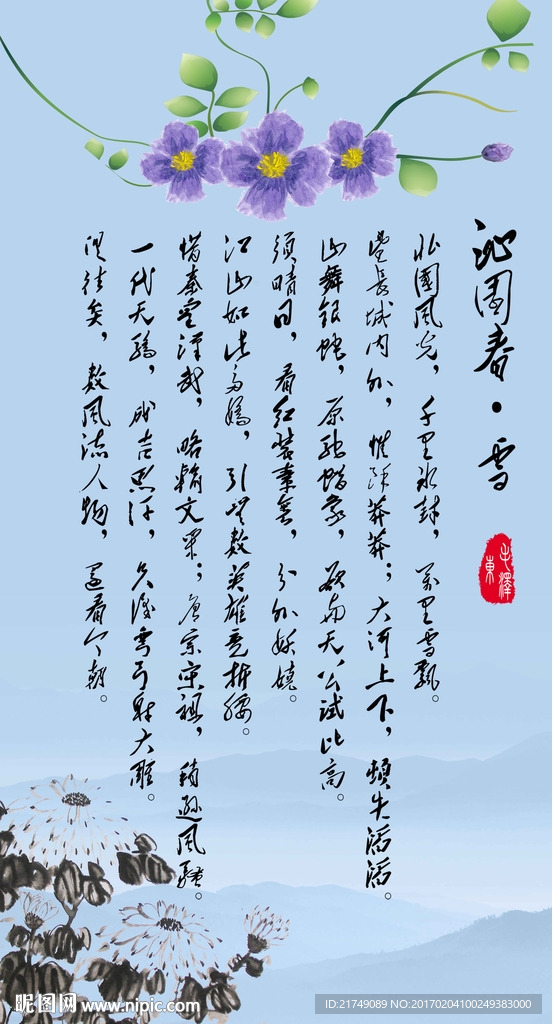 沁園春·雪
毛澤東
北國風光，千里冰封，萬里雪飄。
望長城内外，惟餘莽莽；大河上下，頓失滔滔。
山舞銀蛇，原馳蠟象，欲與天公試比高。
須晴日，看紅裝素裹，分外妖嬈。
江山如此多嬌，引無數英雄竞折腰。
惜秦皇漢武，略輸文采；唐宗宋祖，稍遜風騷。
一代天驕，成吉思汗，只識彎弓射大雕。
俱往矣，數風流人物，還看今朝。
昵图网 www.nipic.com
ID:21749089 NO:20170204100249383000